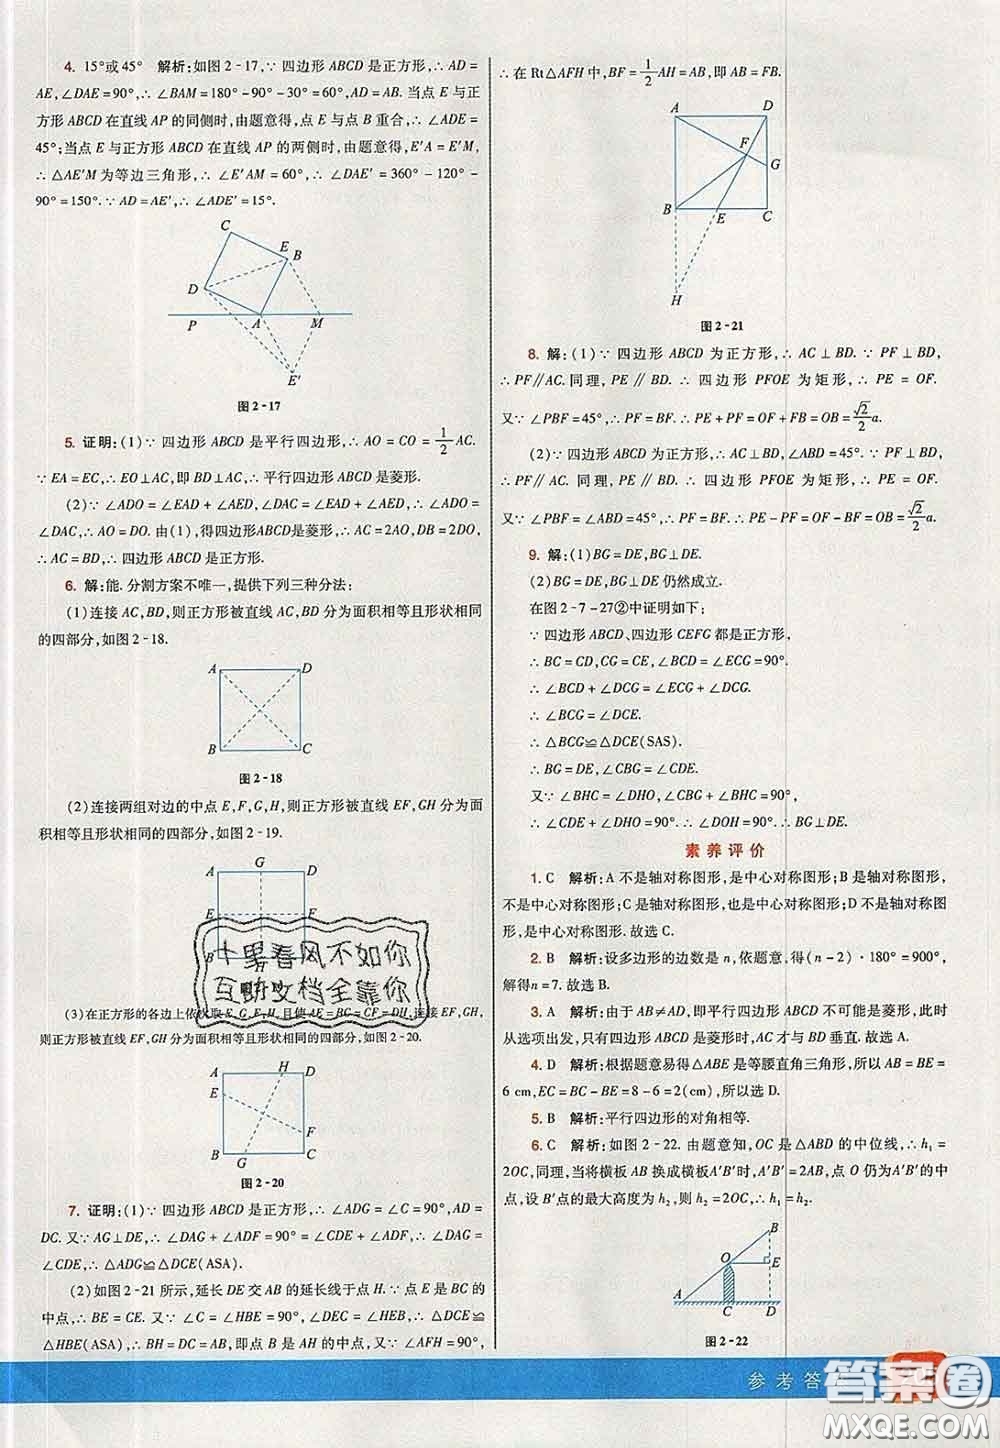 4. 15°或45° 解析:如图2-17,∵四边形ABCD是正方形,∴AD=
AE,∠DAE=90°,∴∠BAM=180°-90°-30°=60°,AD=AB.当点E与正
方形ABCD在直线AP的同侧时,由题意得,点E与点B重合,∴∠ADE=
45°;当点E与正方形ABCD在直线AP的两侧时,由题意得,E'A=E'M,
∴△AE'M为等边三角形,∴∠E'AM=60°,∴∠DAE'=360°-120°-
90°=150°.∵AD=AE',∴∠ADE'=15°.
C
E
B
D
P
A
M
E'
图2-17
5. 证明:(1)∵四边形ABCD是平行四边形,∴AO=CO=1/2AC.
∵EA=EC,∴EO⊥AC,即BD⊥AC,∴平行四边形ABCD是菱形.
(2)∵∠ADO=∠EAD+∠AED,∠DAC=∠EAD+∠AED,∴∠ADO=
∠DAC,∴AO=DO.由(1),得四边形ABCD是菱形,∴AC=2AO,DB=2DO,
∴AC=BD,∴四边形ABCD是正方形.
6. 解:能.分割方案不唯一,提供下列三种分法:
(1)连接AC,BD,则正方形被直线AC,BD分为面积相等且形状相同
的四部分,如图2-18.
A
D
B
C
图2-18
(2)连接两组对边的中点E,F,G,H,则正方形被直线EF,GH分为面
积相等且形状相同的四部分,如图2-19.
A
G
D
E
F
B
H
十里春风不如你
互助文档全靠你
(3)在正方形的各边上依次取E,G,F,H,且使AE=BG=CF=DH,连接EF,GH,
则正方形被直线EF,GH分为面积相等且形状相同的四部分,如图2-20.
A
H
D
E
F
B
G
C
图2-20
7. 证明:(1)∵四边形ABCD是正方形,∴∠ADG=∠C=90°,AD=
DC.又∵AG⊥DE,∴∠DAG+∠ADF=90°=∠CDE+∠ADF,∴∠DAG=
∠CDE,∴△ADG≌△DCE(ASA).
(2)如图2-21所示,延长DE交AB的延长线于点H.∵点E是BC的
中点,∴BE=CE.又∵∠C=∠HBE=90°,∠DEC=∠HEB,∴△DCE≌
△HBE(ASA),∴BH=DC=AB,即点B是AH的中点,又∵∠AFH=90°,
∴在Rt△AFH中,BF=1/2AH=AB,即AB=FB.
A
D
F
G
B
E
C
H
图2-21
8. 解:(1)∵四边形ABCD为正方形,∴AC⊥BD.∵PF⊥BD,
∴PF∥AC.同理,PE∥BD.∴四边形PFOE为矩形,∴PE=OF.
又∵∠PBF=45°,∴PF=BF.∴PE+PF=OF+FB=OB=√2/2a.
(2)∵四边形ABCD为正方形,∴AC⊥BD,∠ABD=45°.∵PF⊥BD,
∴PF∥AC.同理,PE∥BD.∴四边形PFOE为矩形,∴PE=OF.
又∵∠PBF=∠ABD=45°,∴PF=BF.∴PE-PF=OF-BF=OB=√2/2a.
9. 解:(1)BG=DE,BG⊥DE.
(2)BG=DE,BG⊥DE仍然成立.
在图2-7-27②中证明如下:
∵四边形ABCD、四边形CEFG都是正方形,
∴BC=CD,CG=CE,∠BCD=∠ECG=90°.
∴∠BCD+∠DCG=∠ECG+∠DCG.
∴∠BCG=∠DCE.
∴△BCG≌△DCE(SAS).
∴BG=DE,∠CBG=∠CDE.
又∵∠BHC=∠DHO,∠CBG+∠BHC=90°,
∴∠CDE+∠DHO=90°.∴∠DOH=90°.∴BG⊥DE.
素养评价
1. C 解析:A不是轴对称图形,是中心对称图形;B是轴对称图形,
不是中心对称图形;C是轴对称图形,也是中心对称图形;D不是轴对称图
形,是中心对称图形.故选C.
2. B 解析:设多边形的边数是n,依题意,得(n-2)·180°=900°,
解得n=7.故选B.
3. A 解析:由于AB≠AD,即平行四边形ABCD不可能是菱形,此时
从选项出发,只有四边形ABCD是菱形时,AC才与BD垂直.故选A.
4. D 解析:根据题意易得△ABE是等腰直角三角形,所以AB=BE=
6 cm,EC=BC-BE=8-6=2(cm),所以选D.
5. B 解析:平行四边形的对角相等.
6. C 解析:如图2-22.由题意知,OC是△ABD的中位线,∴h₁=
2OC,同理,当将横板AB换成横板A'B'时,点O仍为A'B'的中
点,设B'点的最大高度为h₂,则h₂=2OC,∴h₁=h₂.
B
O
E
A
C
D
图2-22
参考答
答案圈
MXQE.COM